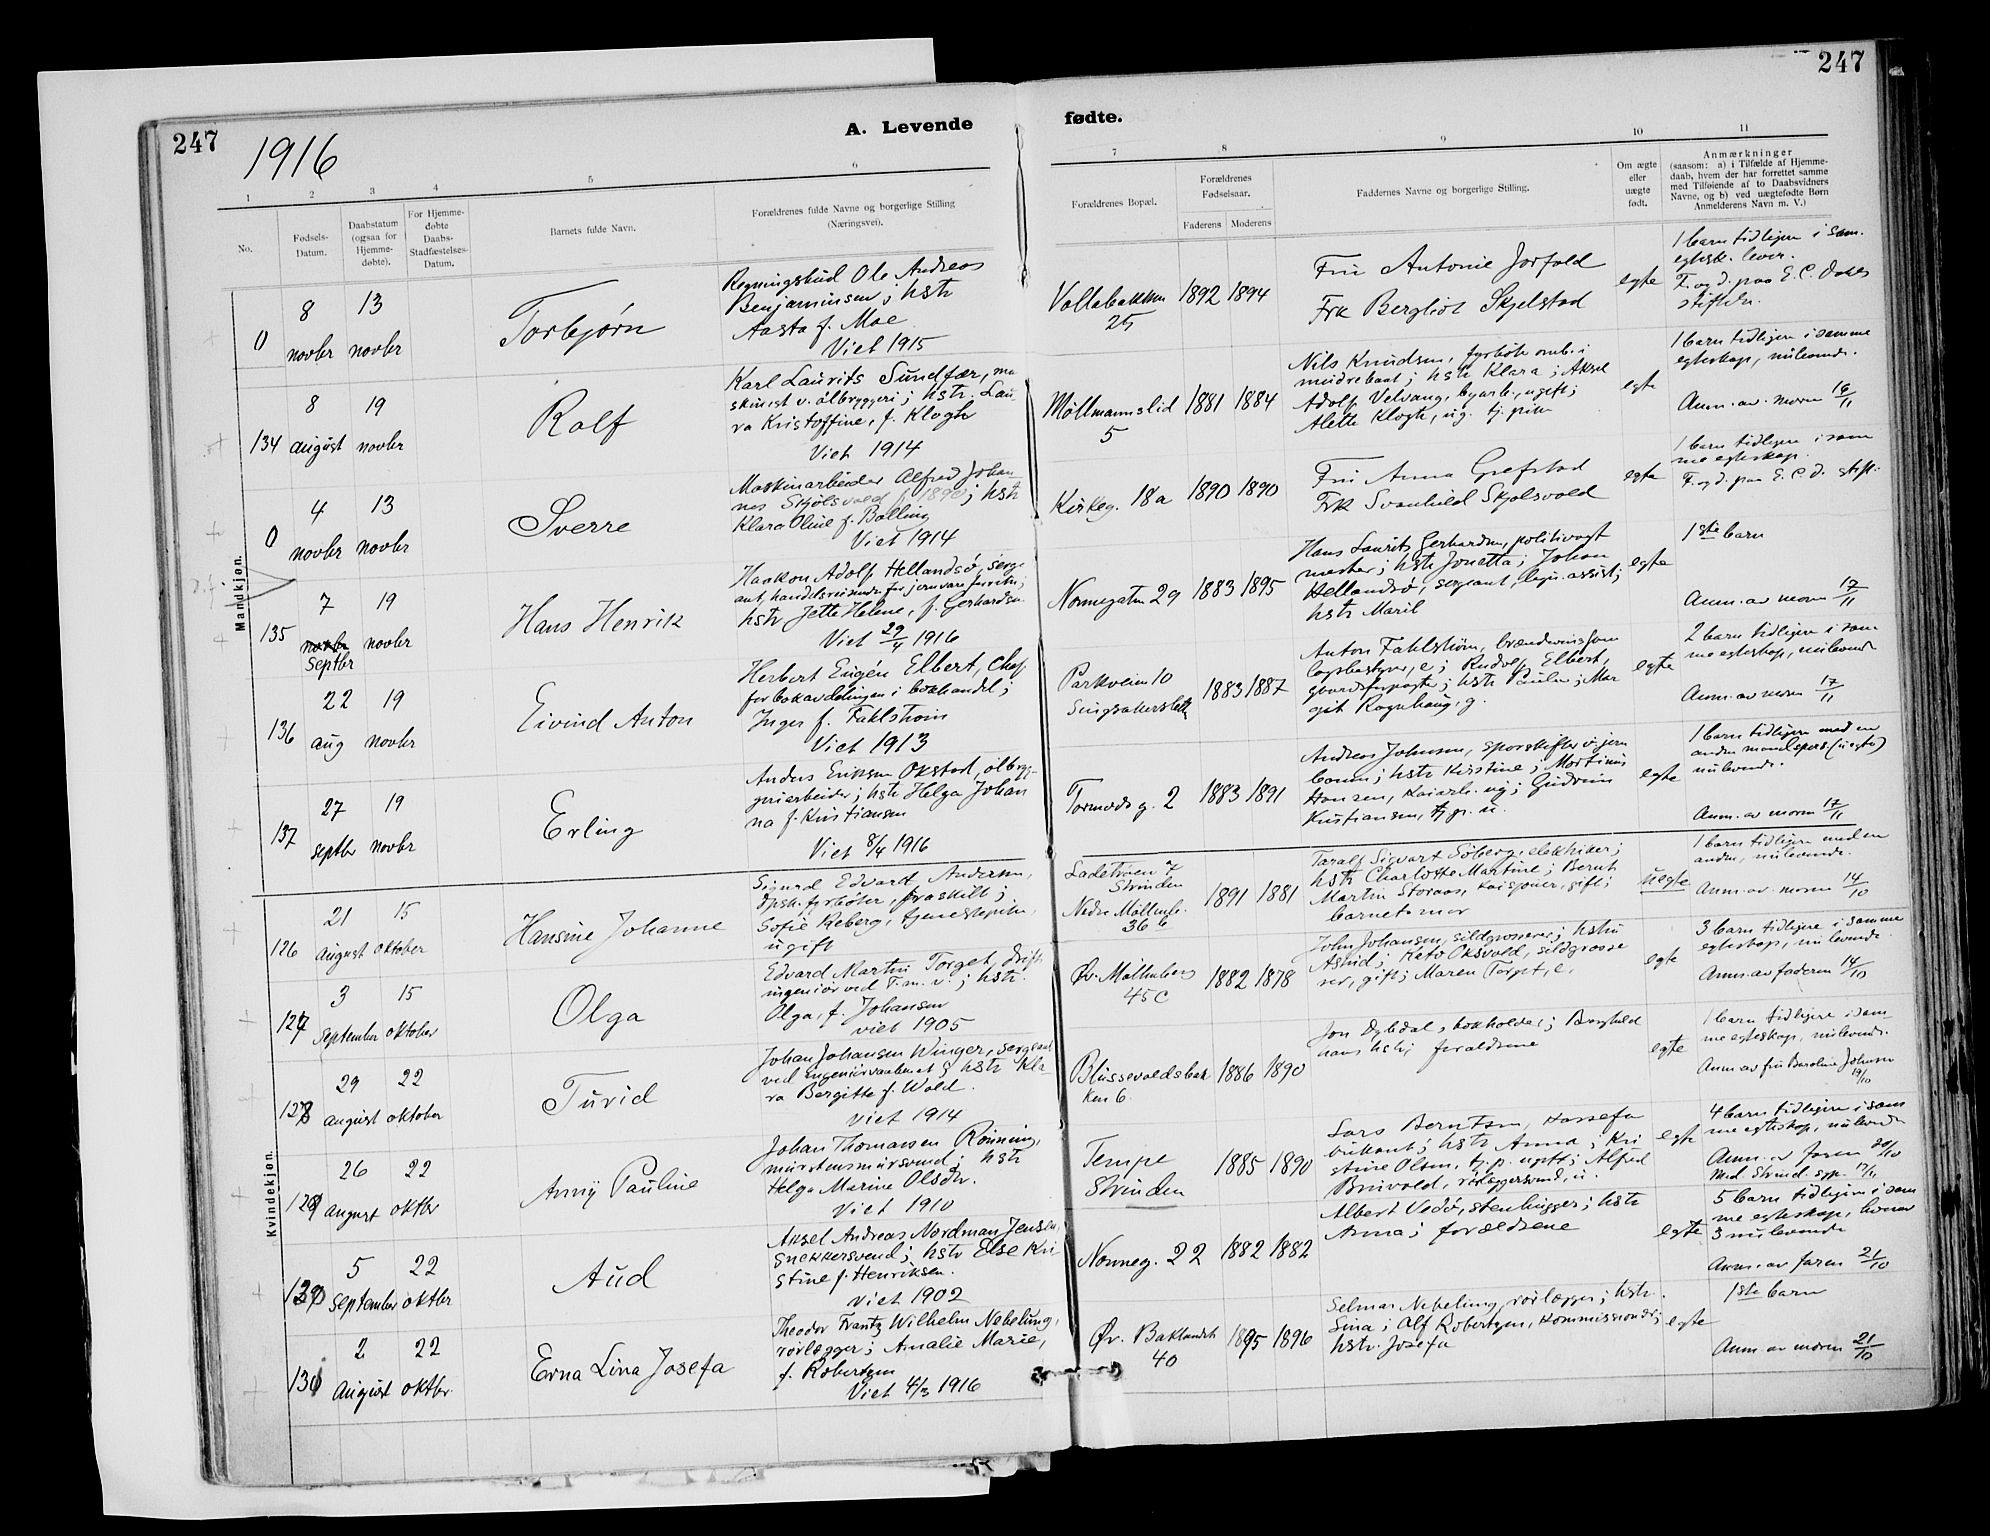 247
1916
A. Levende
1
2
3
4
5
6
No.
Fødsels-
Datum.
Daabstatum
(ogsaa for
Hjemme-
døbte).
For Hjemme-
døbte
Daabs-
Stadfæstelses-
Datum.
Barnets fulde Navn.
Forældrenes fulde Navne og borgerlige Stilling
(Næringsvei).
247
fødte.
7
8
9
10
11
Forældrenes Bopæl.
Forældrenes
Fødselsaar.
Faderens
Moderens
Faddernes Navne og borgerlige Stilling.
Om ægte
eller
uægte
født.
Anmærkninger
(saasom: a) i Tilfælde af Hjemme-
daab, hvem der har forrettet samme
med Tilføiende af to Daabsvidners
Navne, og b) ved uægtefødte Børn
Anmelderens Navn m. V.)
Mandkjøn.
0
8
novbr
13
novbr
Torbjørn
Regningsbud Ole Andreas
Benjaminsen; hstr
Aasta f. Moe
Viet 1915
Vollabakken
25
1892
1894
Fru Antonie Jorfald
Frk Bergliot Skjelstad
egte
1 barn tidligere i sam.
egtesk. lever.
F. og d. paa E. C. Dahls
stiftelse.
134
8
august
19
novbr
Rolf
Karl Laurits Sundfær, ma
skinist v. ølbryggeri; hstr. Lau
ra Kristoffine, f. Klogh
Viet 1914
Møllmannslid
5
1881
1884
Nils Knudsen, fyrbøter ombi
mudrebaat; hstr Klara; Aksel
Adolf Velvang, byarb., ugift;
Alette Klogh, ug. tj.pike
egte
1 barn tidligere i samme
egteskap, nulevende.
Anm. av moren 16/11
0
4
novbr
13
novbr
Sverre
Maskinarbeider Alfred Johan
nes Skjølsvold f. 1890; hstr
Klara Oline f. Balling
Viet 1914
Kirkeg. 18a
1890
1890
Fru Anna Grefstad
Frk Svanhild Skjølsvold
egte
1 barn tidligere i sam
me egteskap.
F. og d. paa E. C. D. stift.
135
7
novbr
septbr
19
novbr
Hans Henrik
Haakon Adolf Hellandsø, serge
ant, handelsreisende for jernvareforretn;
hstr Jette Helene, f. Gerhardsen
Viet 29/4 1916
Nonnegaten 29
1883
1895
Hans Laurits Gerhardsen, politivagt
mester; hstr Jonetta; Johan
Hellandsø, sergeant, assist;
hstr Maril
egte
1ste barn
Anm. av moren 17/11
136
22
aug
19
novbr
Eivind Anton
Herbert Eugén Elbert, Chef
for bokavdelingen i bokhandel;
Inger f. Fahlstrøm
Viet 1913
Parkveien 10
Singsakersletta
1883
1887
Anton Fahlstrøm,
e; Rudolf Elbert,
gaardsforpagter; hstr Paula; Mar
git Rognhaug, g.
egte
2 barn tidligere i sam
me egteskap, nulevende
Anm. av moren 17/11
137
27
septbr
19
novbr
Erling
Anders Eriksen Okstad, ølbryg-
geriarbeider; hstr Helga Johan
na f. Kristiansen
Viet 8/4 1916
Tormods g. 2
1883
1891
Andreas Johnsen, sporskifter v. jern
banen; hstr Kristine; Martinius
Hansen, kaiarb. ug; Gudrun
Kristiansen, tj.p. u.
egte
1 barn tidligere med en
anden mandspers. (uegte)
nulevende.
Anm. av moren 17/11
Kvindekjøn.
126
21
august
15
oktober
Hansine Johanne
Sigurd Edvard Andersen,
dpsk.fyrbøter, fraskilt;
Sofie Reberg, tjenestepike,
ugift
Ladetroen
Strinden
Nedre Møllenb.
36 b
1891
1881
Taralf Sigvart Søberg, elektriker;
hstr Charlotte Martine; Bernt
Martin Storaas, gift;
barnets mor
uegte
1 barn tidligere med en
anden, nulevende.
Anm. av moren 14/10
127
3
September
15
oktober
Olga
Edvard Martin Torget, drifts
ingeniør ved T.m.v.; hstr.
Olga, f. Johansen
viet 1905
Øv. Møllenberg
45 C
1882
1878
John Johansen, sildgrosserer; hstru
Astrid; Oksvold, sildgrosse
rer, gift; Maren Torget, e.
egte
3 barn tidligere i samme
egteskap, nulevende.
Anm. av faderen 14/10
128
29
august
22
oktober
Turid
Johan Johansen Winger, sergeant
ved ingeniørvaabnet; hstr Kla
ra Bergitte f. Wold.
viet 1914
Blussevoldsbak
ken 6.
1886
1890
Jon Dybdal, bokholder; Borghild
hans hstr; forældrene
egte
1 barn tidligere i sam
me egteskap, nulevende.
Anm. av fru Baroline Johnsen
19/10
129
26
august
22
oktbr
Anny Pauline
Johan Thomasen Rønning,
murstensmursvend; hstr
Helga Marine Olsdtr.
Viet 1910
Tempe
Strinden
1885
1890
Lars Berntsen, kassefa
brikant; hstr Anna; Kri
stine Olsen, tj.p. ugift; Alfred
Brevold, rørlæggersvend, u.
egte
4 barn tidligere i sam
me egteskap, nulevende
Anm. av faren 20/10
Med. Strind. spr.
130
5
September
22
oktbr
Aud
Aksel Andreas Nordman Jensen,
snekkersvend; hstr Else Kri
stine f. Henriksen.
viet 1902
Nonneg. 22
1882
1882
Albert Vedø, stenhugger; hstr
Anna; forældrene
egte
5 barn tidligere i sam
me egteskap, hvorav
3 nulevende
Anm. av faren 21/10
131
2
August
22
oktbr.
Erna Lina Josefa
Theodor Frantz Wilhelm Nebelung,
rørlægger; Amalie Marie,
f. Robertsen
Viet 4/3 1916
Øv. Baklandt
40
1895
1896
Selmar Nebelung, rørlægger; hstr.
Lina; Alf Robertsen, kommissionær;
hstr. Josefa
egte
1ste barn
Anm. av moren 21/10